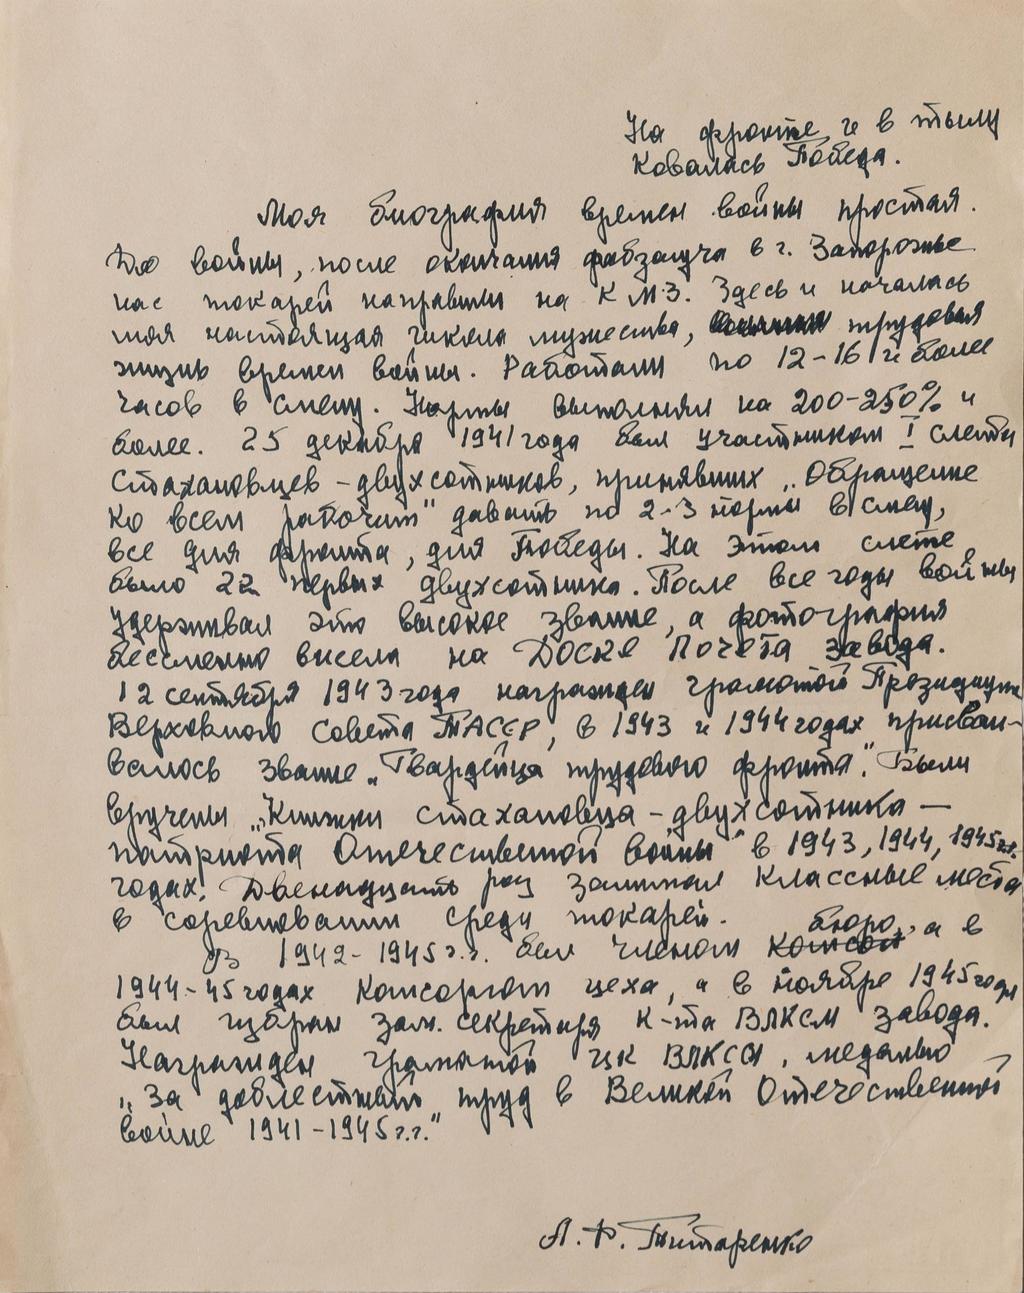 На фронте и в тылу
Ковалась Победа.
Моя биография времен войны простая.
До войны, после окончания фабзауча в г. Запорожье
нас токарей направили на КМЗ. Здесь и началась
моя настоящая школа мужества, трудовая
жизнь времен войны. Работали по 12-16 и более
часов в смену. Нормы выполнял на 200-250% и
более. 25 декабря 1941 года был участником I слета
стахановцев-двухсотников, принявших „Обращение
ко всем рабочим" давать по 2-3 нормы в смену,
все для фронта, для Победы. На этом слете
было 22 первых двухсотника. После все годы войны
удерживал это высокое звание, а фотография
бессменно висела на Доске Почета завода.
12 сентября 1943 года награжден грамотой Президиума
Верховного Совета ТАССР, в 1943 и 1944 годах присваи-
валось звание „Гвардейца трудового фронта". Были
вручены „Книжки стахановца-двухсотника —
патриота Отечественной войны" в 1943, 1944, 1945 г.г.
годах. Двенадцать раз занимал классные места
в соревновании среди токарей.
В 1942-1945 г.г. был членом комсом бюро, а в
1944-45 годах комсоргом цеха, а в ноябре 1945 года
был избран зам. секретаря к-та ВЛКСМ завода.
Награжден грамотой ЦК ВЛКСМ, медалью
„За доблестный труд в Великой Отечественной
войне 1941-1945 г.г."
Титаренко